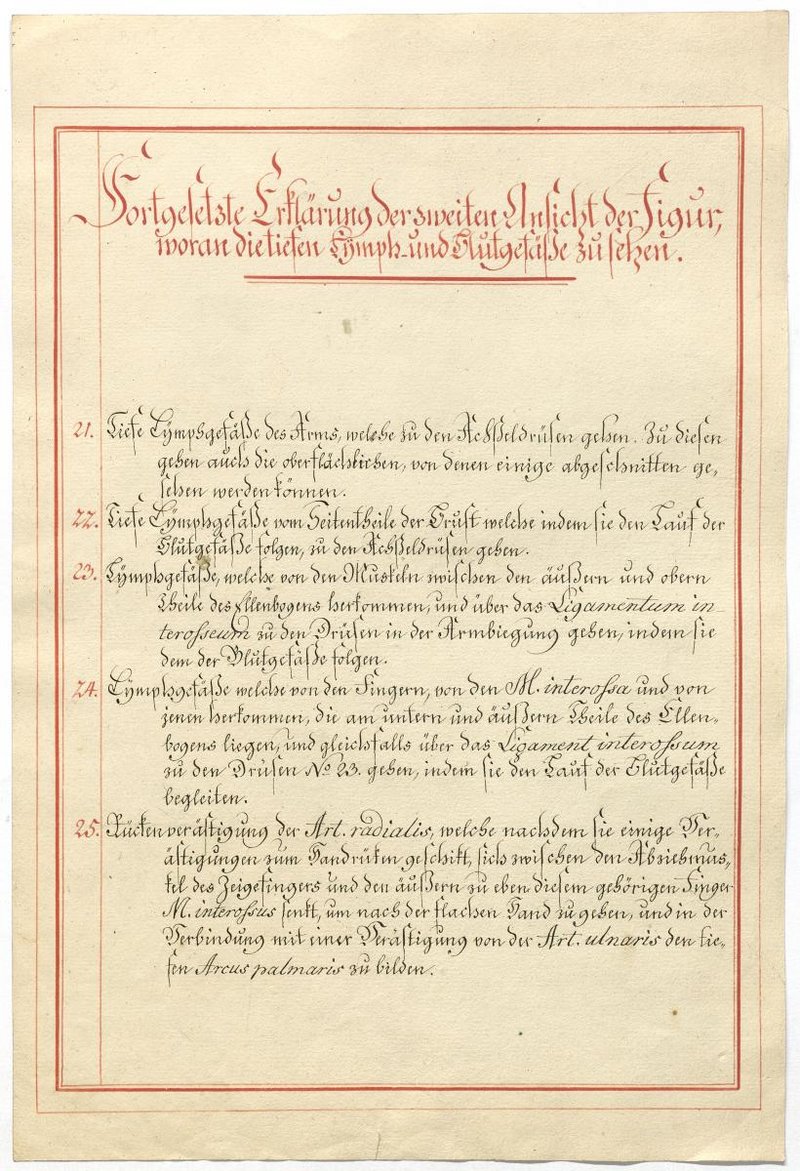 Fortgesetzte Erklärung der zweiten Ansicht der Figur,
woran die tiefen Lymph- und Blutgefäße zu sehen.
21. Tiefe Lÿmphgefäße des Arms, welche zu den Achßeldrüsen gehen. Zu diesen
gehen auch die oberflächlichen, von denen einige abgeschnitten ge-
sehen werden können.
22. Tiefe Lÿmphgefäße vom Seitentheile der Brust welche indem sie den Lauf der
Blutgefäße folgen, zu den Achßeldrüsen gehen.
23. Lÿmphgefäße, welche von den Muskeln zwischen den äußern und obern
Theile des Ellenbogens herkommen, und über das Ligamentum in-
terosseum zu den Drüsen in der Armbiegung gehen, indem sie
dem der Blutgefäße folgen.
24. Lÿmphgefäße welche von den Fingern, von den M. interossa und von
jenen herkommen, die am untern und äußern Theile des Ellen-
bogens liegen, und gleichfalls über das Ligament interossum
zu den Drüsen No 23. gehen, indem sie den Lauf der Blutgefäße
begleiten.
25. Rückenverästigung der Art. radialis, welche nachdem sie einige Ver-
ästigungen zum Handrüken geschikt, sich zwischen den Abziehmus-
kel des Zeigefingers und den äußern zu eben diesem gehörigen Finger
M. interossus senkt, um nach der flachen Hand zu gehen, und in der
Verbindung mit einer Verästigung von der Art. ulnaris den tie-
fen Arcus palmaris zu bilden.